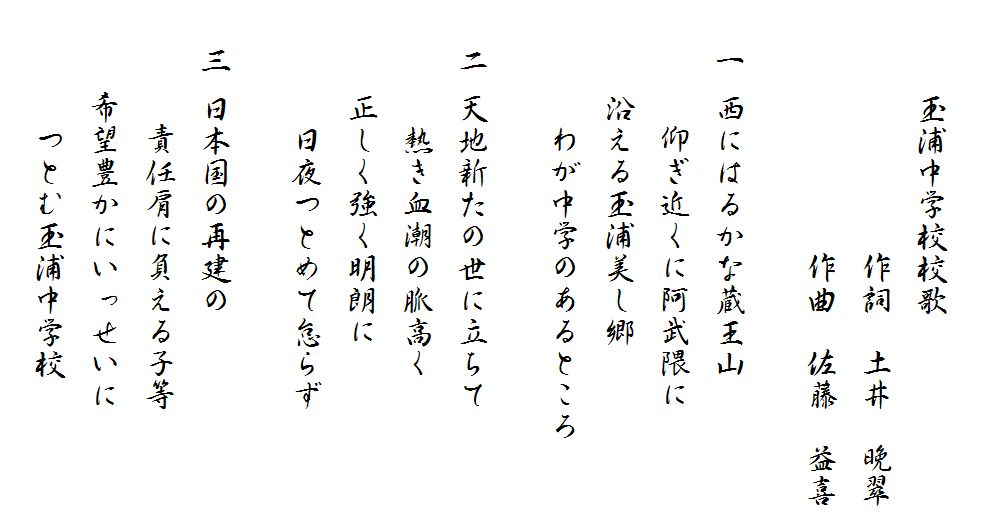 玉浦中学校校歌
作詞 土井 晩翠
作曲 佐藤 益喜
一 西にはるかな蔵王山
仰ぎ近くに阿武隈に
沿える玉浦美し郷
わが中学のあるところ
二 天地新たの世に立ちて
熱き血潮の脈高く
正しく強く明朗に
日夜つとめて怠らず
三 日本国の再建の
責任肩に負える子等
希望豊かにいっせいに
つとむ玉浦中学校